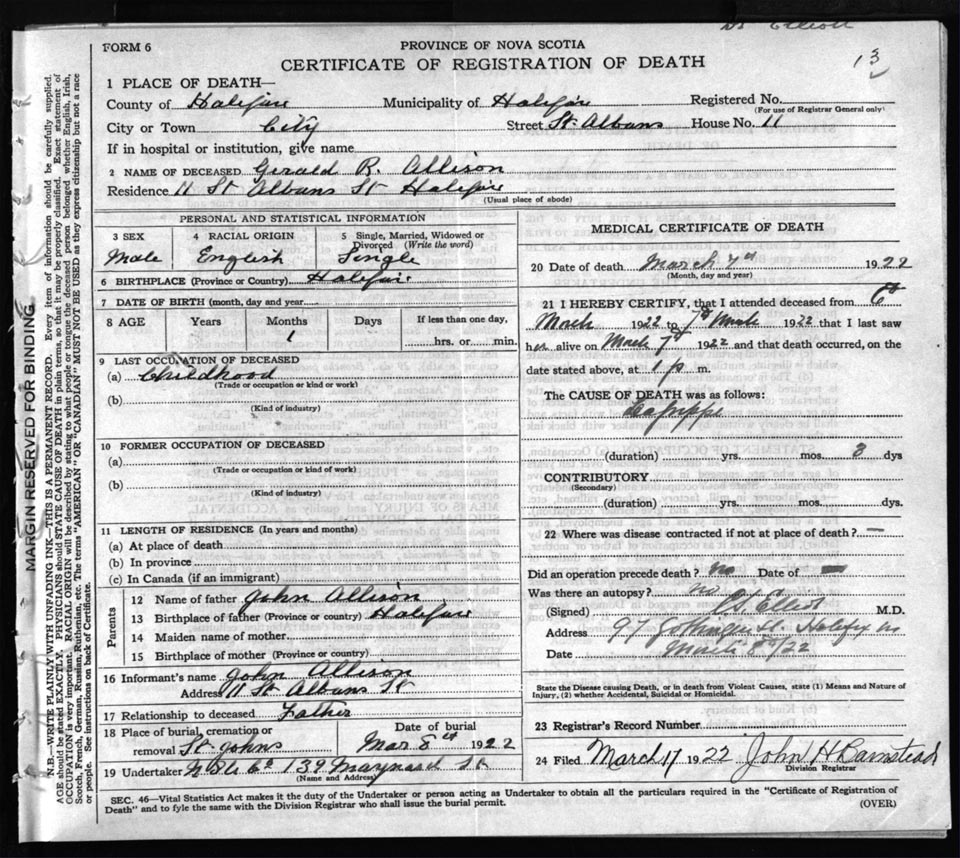 Dr Elliott
FORM 6
PROVINCE OF NOVA SCOTIA
CERTIFICATE OF REGISTRATION OF DEATH
13
1 PLACE OF DEATH—
County of Halifax Municipality of Halifax Registered No.
(For use of Registrar General only)
City or Town City Street St. Albans House No. 11
If in hospital or institution, give name
2 NAME OF DECEASED Gerald R. Allison
Residence 11 St Albans St Halifax
(Usual place of abode)
PERSONAL AND STATISTICAL INFORMATION
3 SEX 4 RACIAL ORIGIN 5 Single, Married, Widowed or
Divorced (Write the word)
Male English Single
6 BIRTHPLACE (Province or Country) Halifax
7 DATE OF BIRTH (month, day and year)
8 AGE Years Months Days If less than one day,
1 hrs. or min.
9 LAST OCCUPATION OF DECEASED
(a) Childhood
(Trade or occupation or kind or work)
(b)
(Kind of industry)
10 FORMER OCCUPATION OF DECEASED
(a)
(Trade or occupation or kind of work)
(b)
(Kind of industry)
11 LENGTH OF RESIDENCE (In years and months)
(a) At place of death
(b) In province
(c) In Canada (if an immigrant)
Parents
12 Name of father John Allison
13 Birthplace of father (Province or country) Halifax
14 Maiden name of mother
15 Birthplace of mother (Province or country)
16 Informant's name John Allison
Address 11 St Albans St
17 Relationship to deceased Father
18 Place of burial, cremation or Date of burial
removal St Johns Mar 8th 1922
19 Undertaker 139 Maynard St
(Name and Address)
MEDICAL CERTIFICATE OF DEATH
20 Date of death March 7th 1922
(Month, day and year)
21 I HEREBY CERTIFY, that I attended deceased from 6th
March 1922 to 7th March 1922 that I last saw
him alive on March 7th 1922 and that death occurred, on the
date stated above, at 1 p m.
The CAUSE OF DEATH was as follows:
La Grippe
(duration) yrs. mos. 3 dys
CONTRIBUTORY
(Secondary)
(duration) yrs. mos. dys.
22 Where was disease contracted if not at place of death? —
Did an operation precede death? No Date of —
Was there an autopsy? No
(Signed) Elliott M.D.
Address 97 Gottingen St. Halifax NS
Date March 8th/22
State the Disease causing Death, or in death from Violent Causes, state (1) Means and Nature of
Injury, (2) whether Accidental, Suicidal or Homicidal.
23 Registrar's Record Number
24 Filed March 17 1922 John H Barnstead
Division Registrar
SEC. 46—Vital Statistics Act makes it the duty of the Undertaker or person acting as Undertaker to obtain all the particulars required in the "Certificate of Registration of
Death" and to fyle the same with the Division Registrar who shall issue the burial permit.
(OVER)
MARGIN RESERVED FOR BINDING
N.B.—WRITE PLAINLY WITH UNFADING INK—THIS IS A PERMANENT RECORD. Every item of information should be carefully supplied.
AGE should be stated EXACTLY. PHYSICIANS should STATE CAUSE OF DEATH in plain terms, so that it may be properly classified. Exact statement of
OCCUPATION is very important. RACIAL ORIGIN will be described by stating to what people or tongue the deceased person belonged whether English, Irish,
Scotch, French, German, Russian, Ruthenian, etc. The terms "AMERICAN" OR "CANADIAN" MUST NOT BE USED as they express citizenship but not a race
or people. See instructions on back of Certificate.